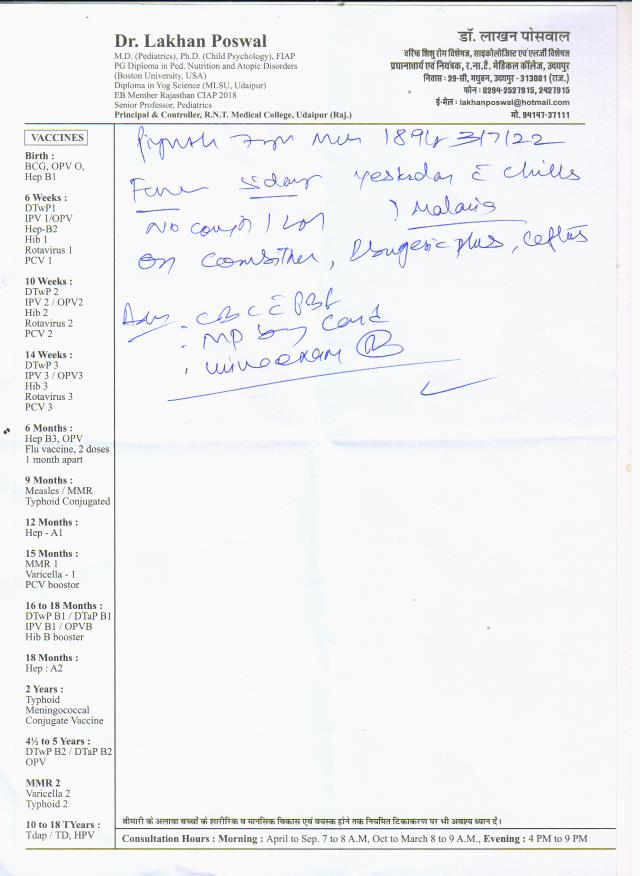 Dr. Lakhan Poswal
M.D. (Pediatrics), Ph.D. (Child Psychology), FIAP
PG Diploma in Ped. Nutrition and Atopic Disorders
(Boston University, USA)
Diploma in Yog Science (MLSU, Udaipur)
EB Member Rajasthan CIAP 2018
Senior Professor, Pediatrics
Principal & Controller, R.N.T. Medical College, Udaipur (Raj.)
डॉ. लाखन पोसवाल
वरिष्ठ शिशु रोग विशेषज्ञ, साइकोलोजिस्ट एवं एलर्जी विशेषज्ञ
प्रधानाचार्य एवं नियंत्रक, र.ना.टै. मेडिकल कॉलेज, उदयपुर
निवास : 29-सी, मधुबन, उदयपुर - 313001 (राज.)
फोन : 0294-2527915, 2427915
ई-मेल : lakhanposwal@hotmail.com
मो. 94147-37111
VACCINES
Birth :
BCG, OPV O,
Hep B1
6 Weeks :
DTwP1
IPV 1/OPV
Hep-B2
Hib 1
Rotavirus 1
PCV 1
10 Weeks :
DTwP 2
IPV 2 / OPV2
Hib 2
Rotavirus 2
PCV 2
14 Weeks :
DTwP 3
IPV 3 / OPV3
Hib 3
Rotavirus 3
PCV 3
6 Months :
Hep B3, OPV
Flu vaccine, 2 doses
1 month apart
9 Months :
Measles / MMR
Typhoid Conjugated
12 Months :
Hep - A1
15 Months :
MMR 1
Varicella - 1
PCV boostor
16 to 18 Months :
DTwP B1 / DTaP B1
IPV B1 / OPVB
Hib B booster
18 Months :
Hep : A2
2 Years :
Typhoid
Meningococcal
Conjugate Vaccine
4½ to 5 Years :
DTwP B2 / DTaP B2
OPV
MMR 2
Varicella 2
Typhoid 2
10 to 18 TYears :
Tdap / TD, HPV
Piyush 3/7/22
Fever 5 days yesterday c chills
No cough / ) Malaria
on , plus,
Adv - CBC c PBF
- MP by Card
बीमारी के अलावा बच्चों के शारीरिक व मानसिक विकास एवं वयस्क होने तक नियमित टिकाकरण पर भी अवश्य ध्यान दें।
Consultation Hours : Morning : April to Sep. 7 to 8 A.M, Oct to March 8 to 9 A.M., Evening : 4 PM to 9 PM